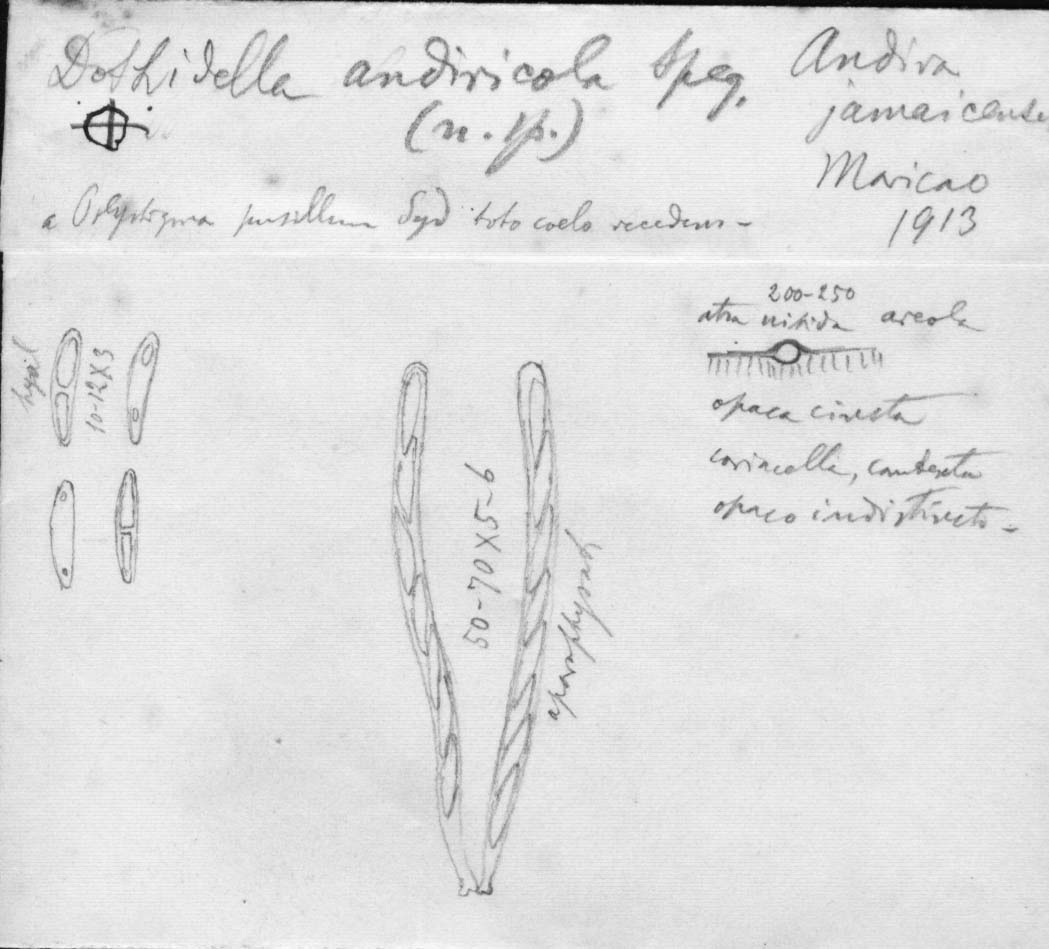 Dothidella andiricola Speg.
(n. sp.)
Andira
jamaicensis
Maricao
1913
a Polystigma pusillum Syd toto coelo recedens -
hyal
10-12X3
50-70X5-6
aparaphysati
200-250
atra nitida areola
opaca
coriacella, contextu
opaco indistincto -